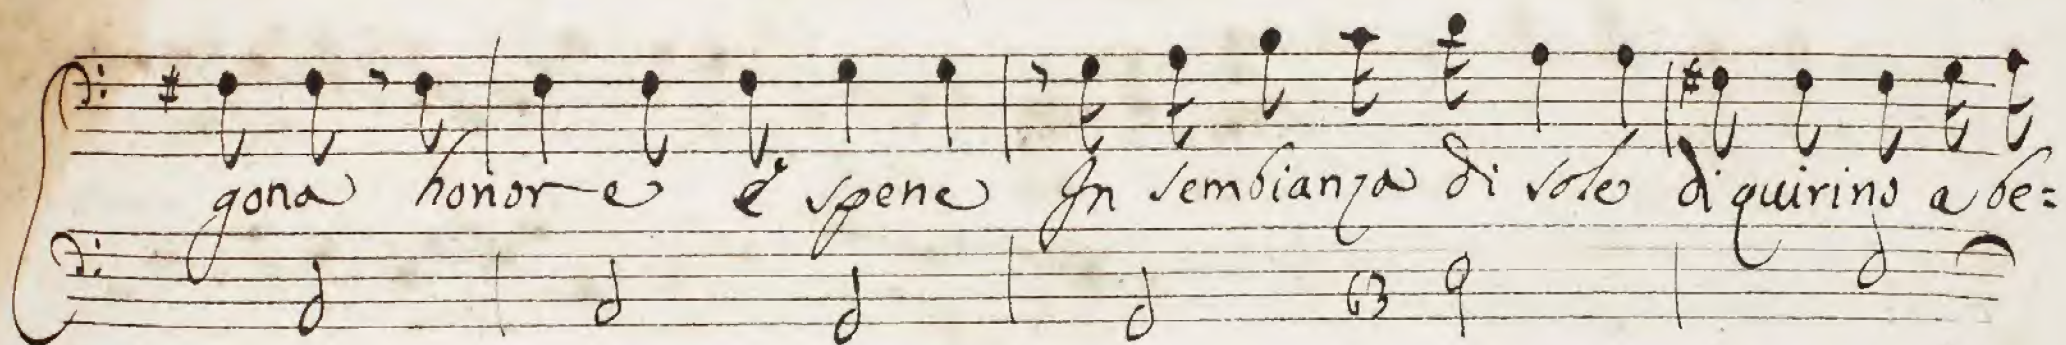 gona honore e spene In sembianza di sole di quirino a be=